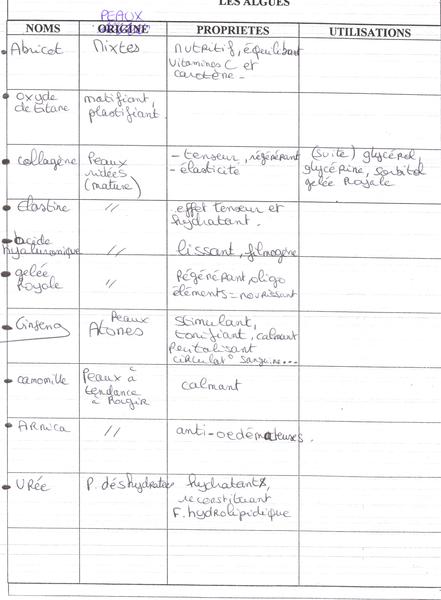 LES ALGUES
PEAUX
NOMS ORIGINE PROPRIETES UTILISATIONS
Abricot Mixtes nutritif, équilibrant
vitamines C et
carotène -
oxyde matifiant,
de titane plastifiant.
collagène Peaux - tenseur, régénérant (suite) glycérol,
ridées - élasticité glycérine, sorbitol
(mature) gelée Royale
élastine // effet tenseur et
hydratant.
acide
hyaluronique // lissant, filmogène
gelée Régénérant, oligo
Royale // éléments = nourissant
Ginseng Peaux stimulant,
Atones tonifiant, calmant
Revitalisant
circulat° sanguine...
camomille Peaux à calmant
tendance
à Rougir
ARnica // anti-oedémateuses.
URée P. déshydratées hydratant,
reconstituant
F. hydrolipidique